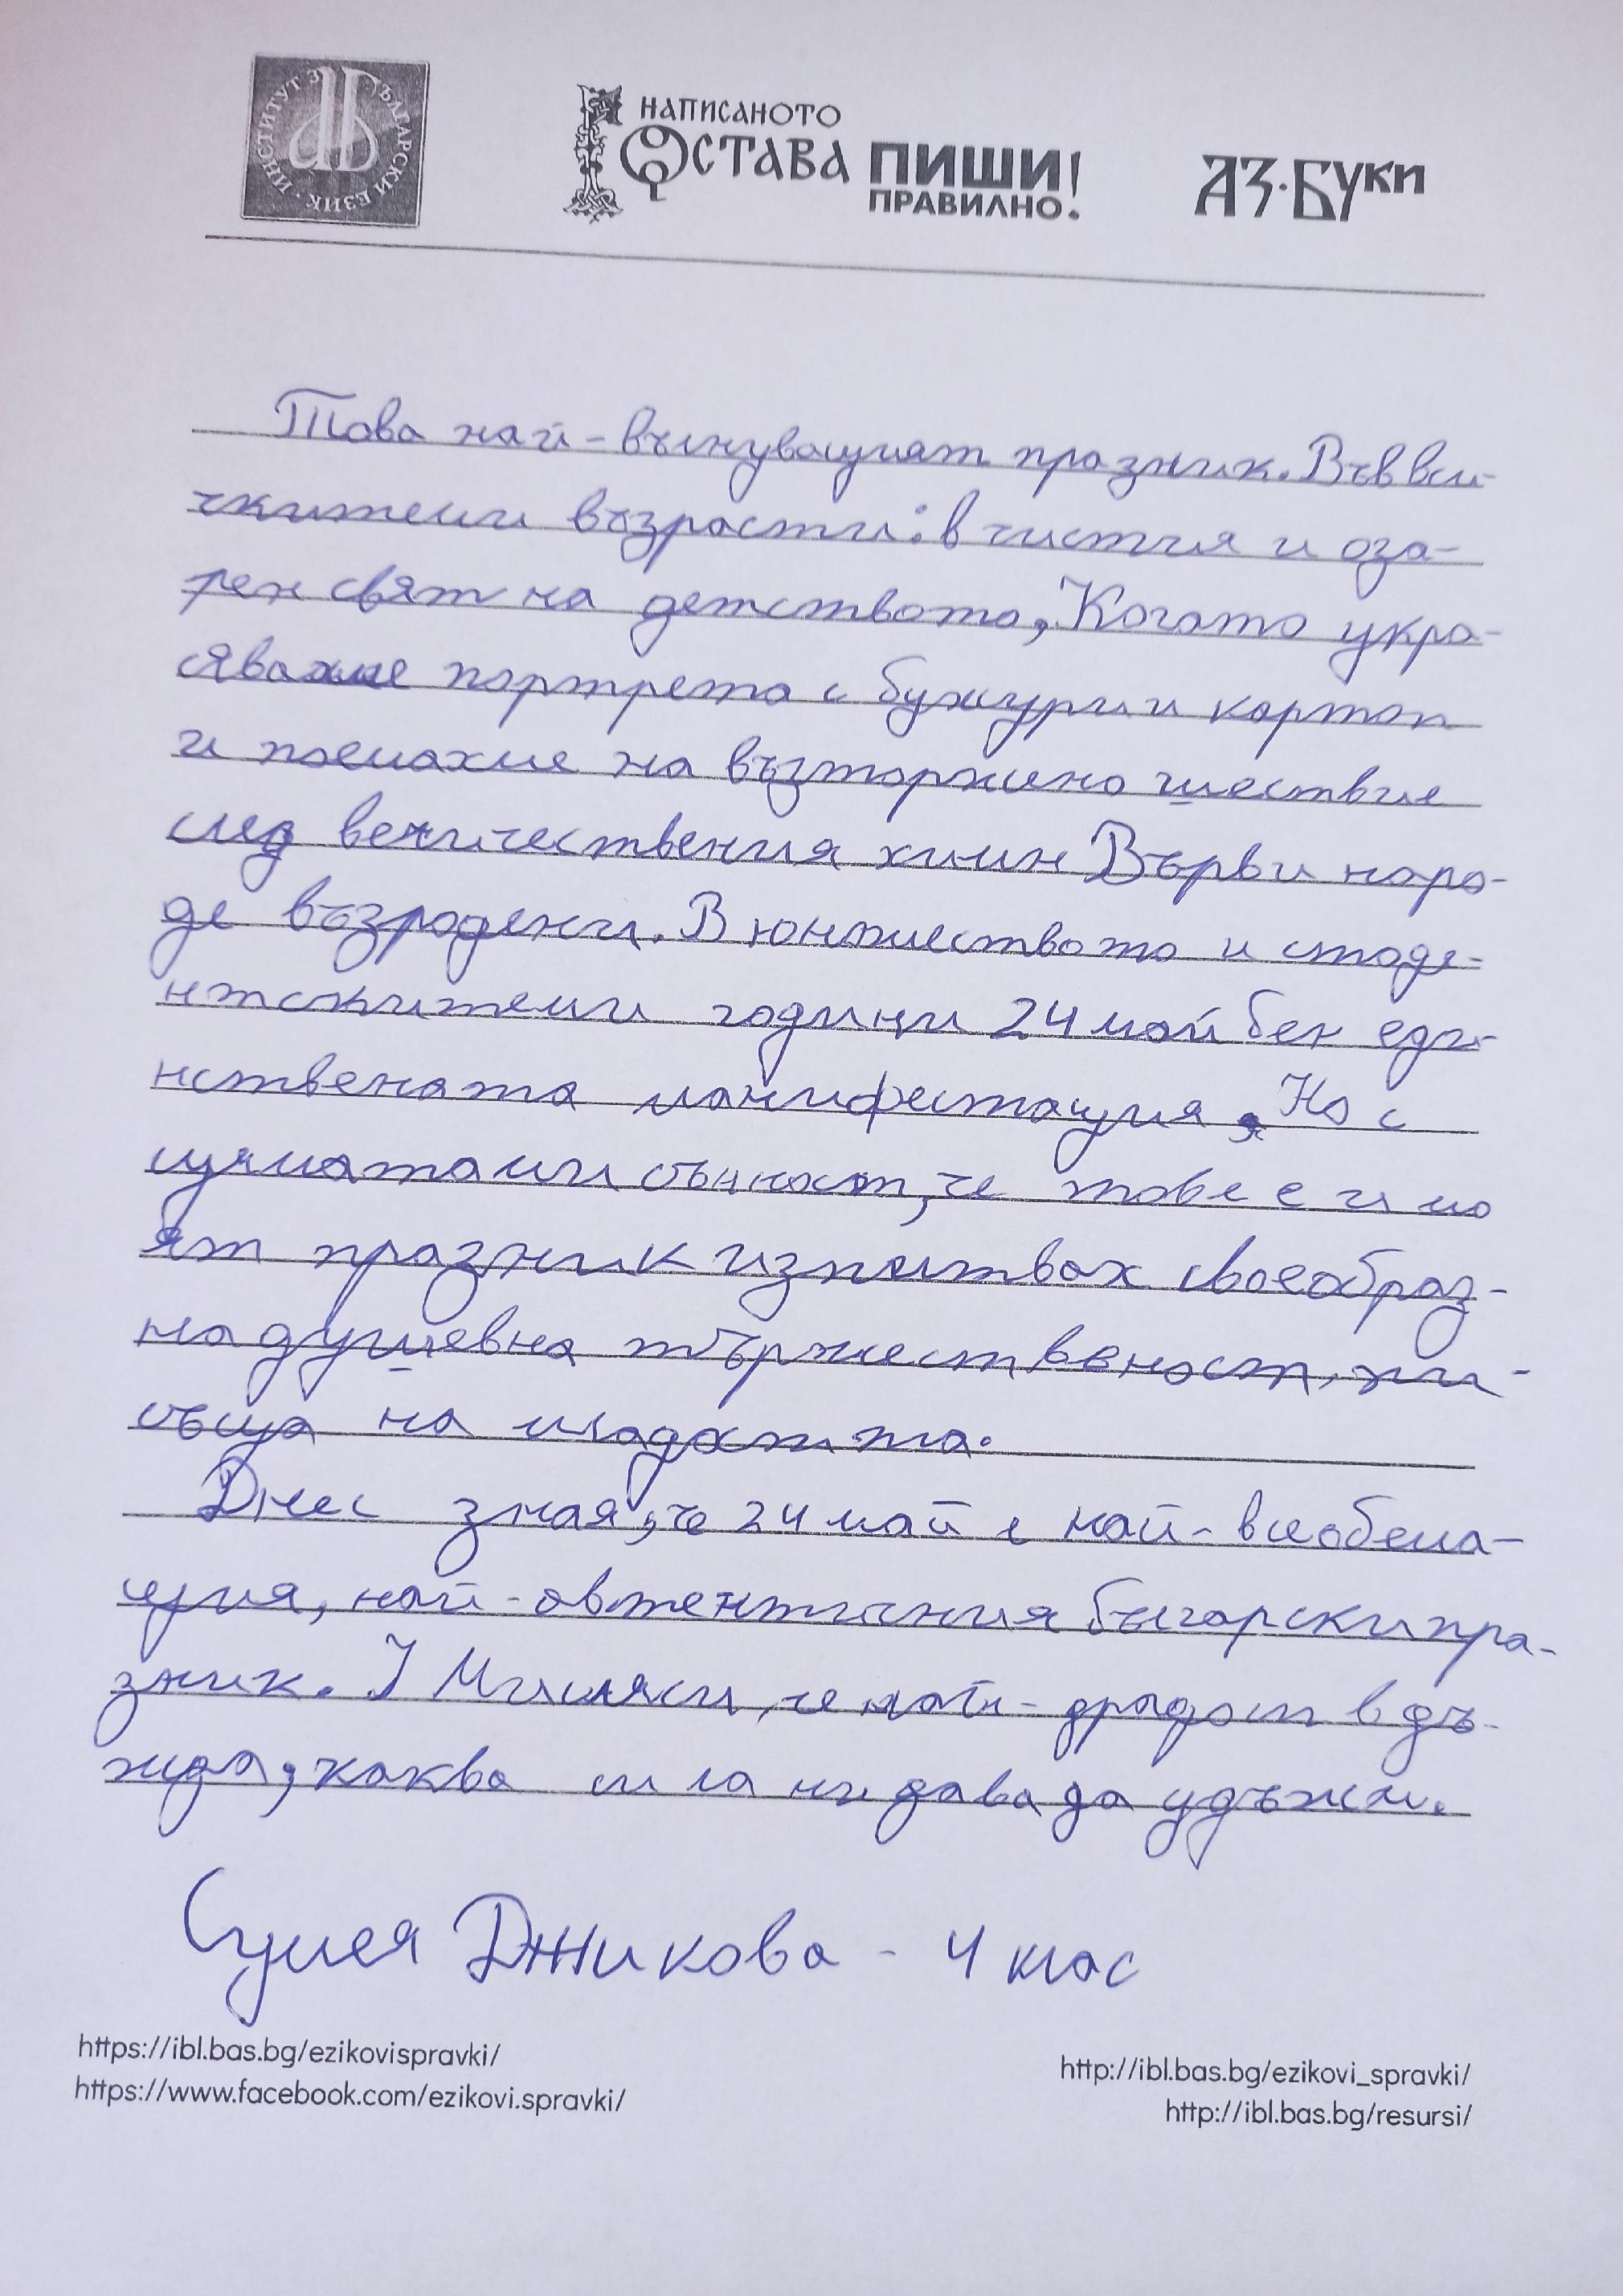 ИНСТИТУТ ЗА БЪЛГАРСКИ ЕЗИК
НАПИСАНОТО
ОСТАВА ПИШИ
ПРАВИЛНО!
АЗ·БУКИ
Това най-вълнуващият празник. Във вси-
чкитеми възрасти: в чистия и оза-
рен свят на детството, Когато укра-
сявахме портрета с бужури и картон
и поемахме на възторжено шествие
след величествения химн Върви наро-
де възродени. В юношеството и стаде-
нтскитеми години 24 май бен еди-
нствената манифестация, Но с
цялатами съчност, че това е и мо
ят празник изпитвах своеобраз-
на душевна тържественост, при-
съща на младостта.
Днес зная, че 24 май е най-всеобема-
щия, най-автентичния български пра-
зник. И Мисляси, че най- дълъ-
жда, каква сила ни дава да удължи.
Сумея Джикова - 4 клас
https://ibl.bas.bg/ezikovispravki/
https://www.facebook.com/ezikovi.spravki/
http://ibl.bas.bg/ezikovi_spravki/
http://ibl.bas.bg/resursi/